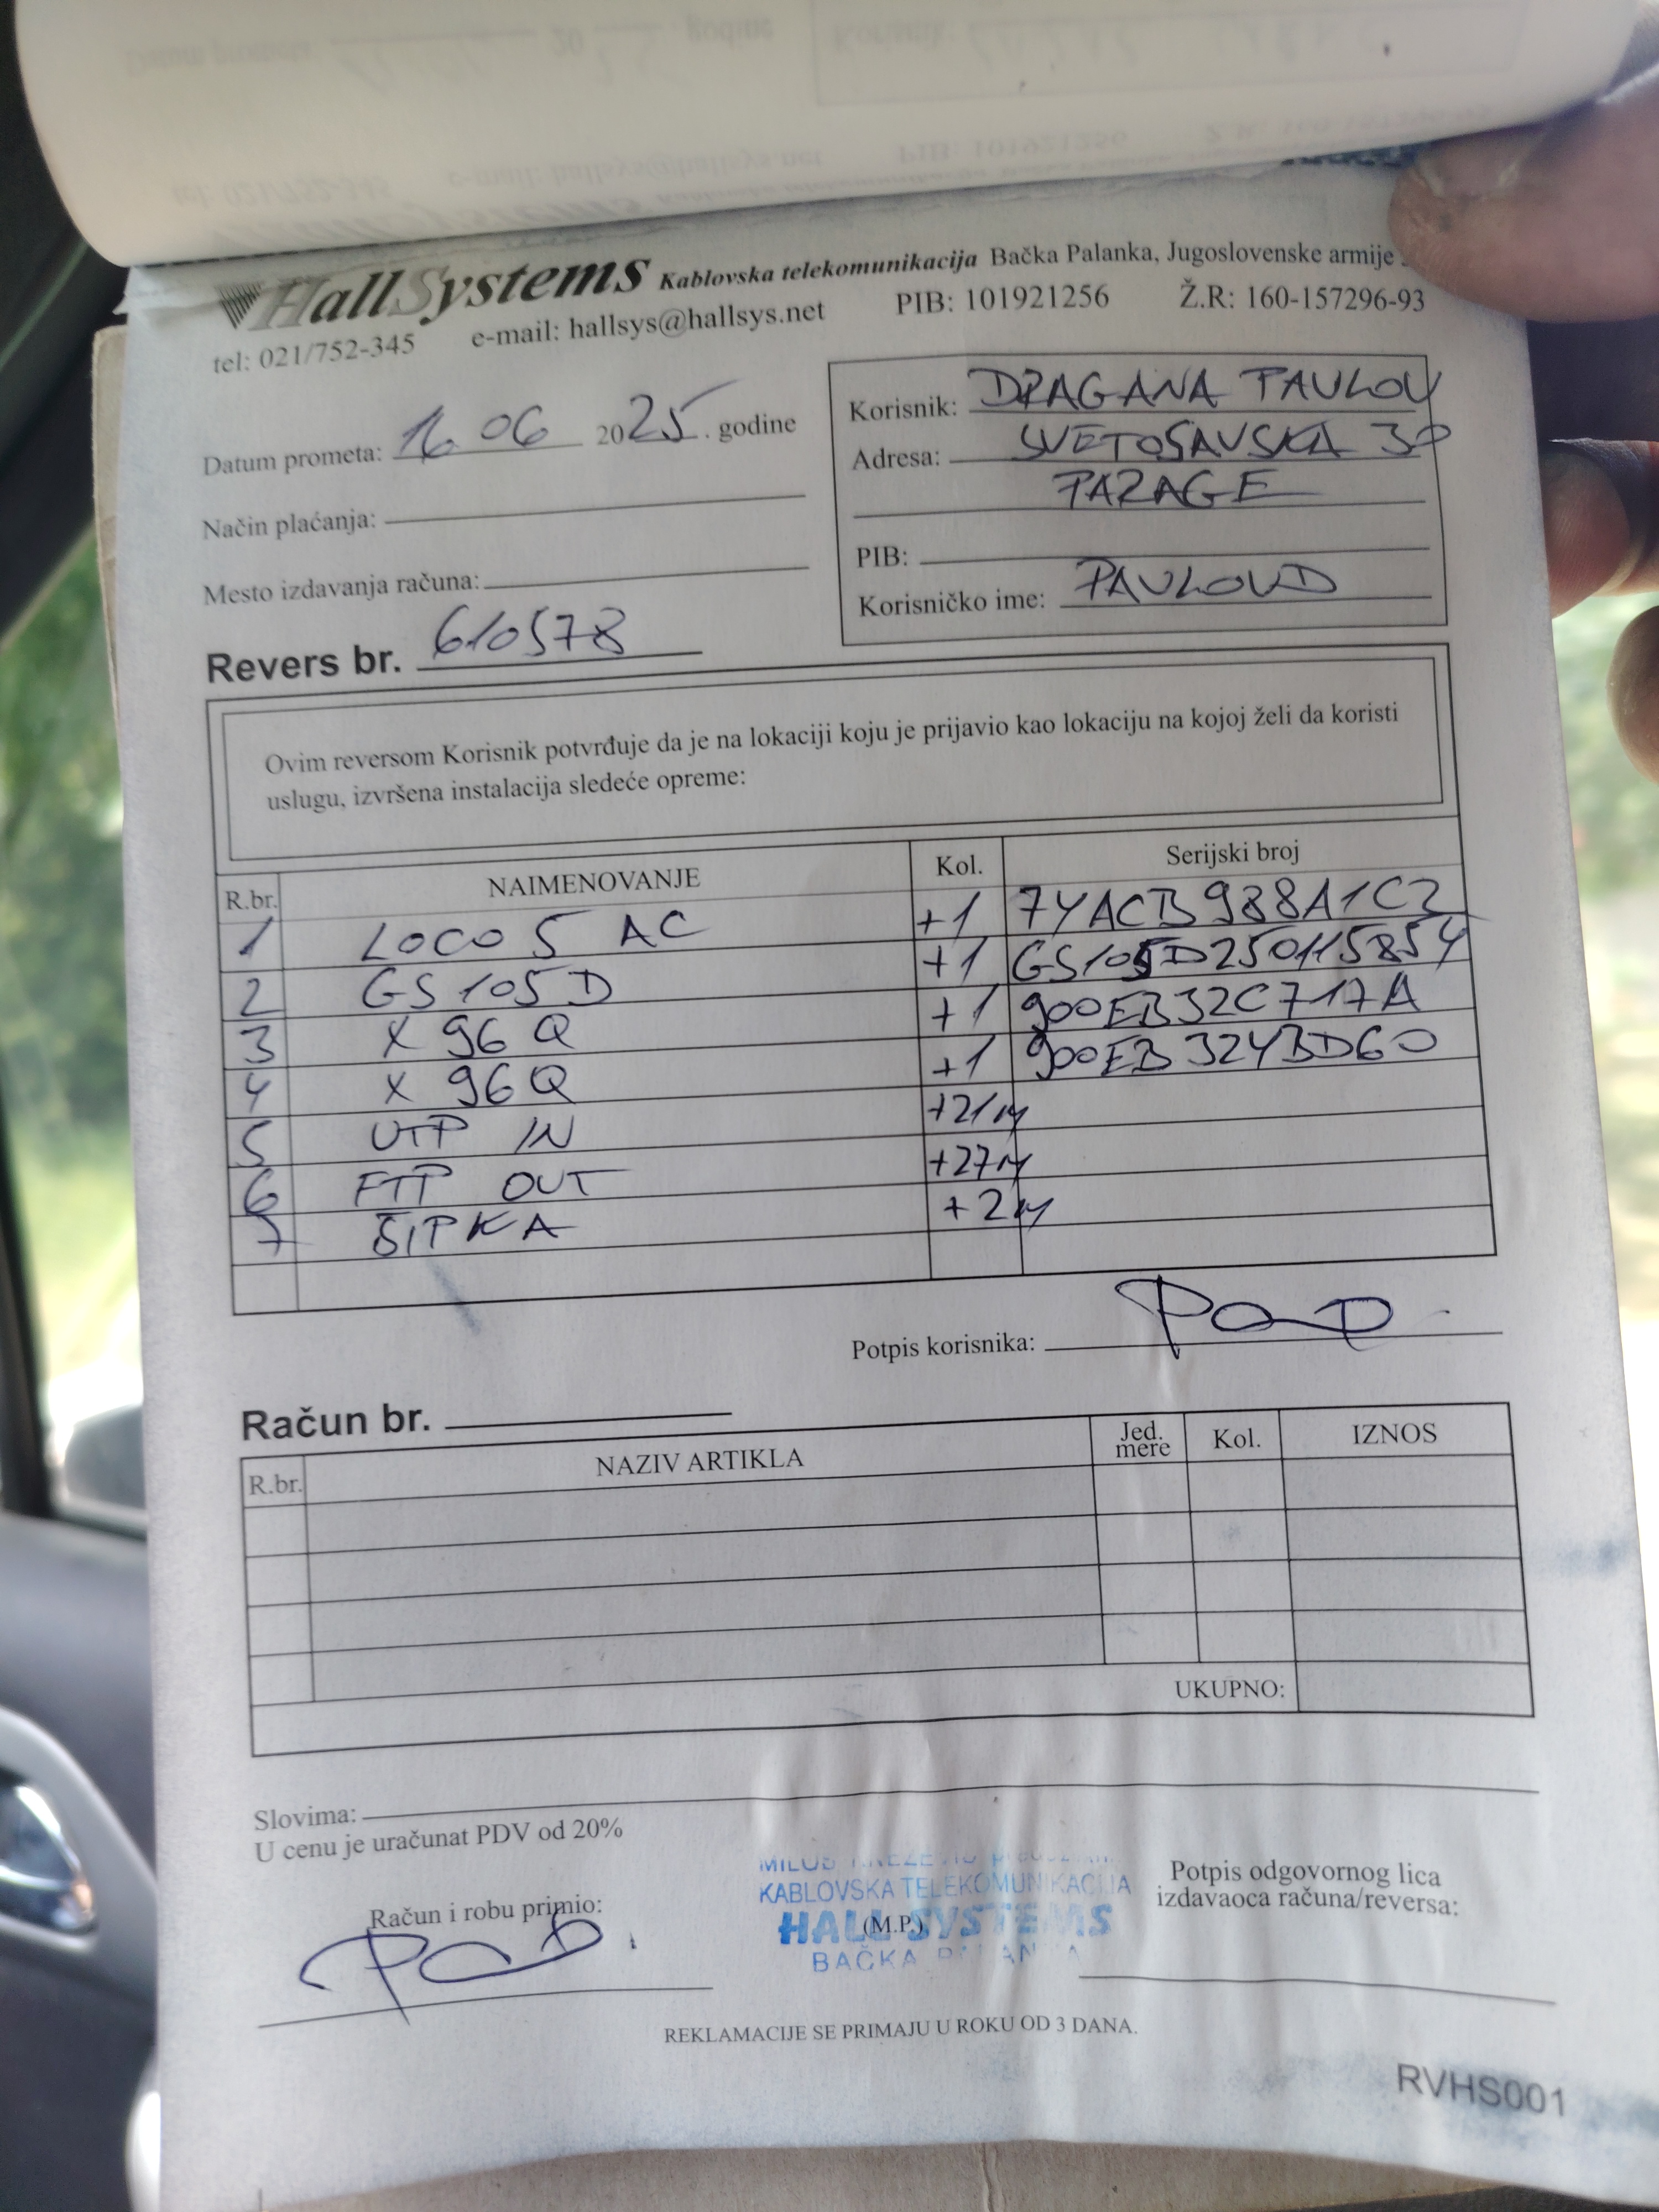 HallSystems Kablovska telekomunikacija Bačka Palanka, Jugoslovenske armije
tel: 021/752-345 e-mail: hallsys@hallsys.net PIB: 101921256 Ž.R: 160-157296-93
Datum prometa: 16.06 2025. godine
Način plaćanja:
Mesto izdavanja računa:
Korisnik: DRAGANA PAVLOV
Adresa: SVETOSAVSKA
PARAGE
PIB:
Korisničko ime: PAVLOVD
Revers br. 610578
Ovim reversom Korisnik potvrđuje da je na lokaciji koju je prijavio kao lokaciju na kojoj želi da koristi
uslugu, izvršena instalacija sledeće opreme:
R.br. NAIMENOVANJE Kol. Serijski broj
1 LOCO 5 AC +1 74ACB988A1C2
2 GS105D +1 GS105D250115854
3 X 96 Q +1 900EB32C717A
4 X 96Q +1 900EB324BD60
5 UTP IN +21M
6 FTP OUT +27M
7 ŠIPKA +2M
Potpis korisnika:
Račun br.
R.br. NAZIV ARTIKLA Jed. mere Kol. IZNOS
UKUPNO:
Slovima:
U cenu je uračunat PDV od 20%
Račun i robu primio:
KABLOVSKA TELEKOMUNIKACIJA
HALL SYSTEMS
(M.P.)
BAČKA PALANKA
Potpis odgovornog lica
izdavaoca računa/reversa:
REKLAMACIJE SE PRIMAJU U ROKU OD 3 DANA.
RVHS001